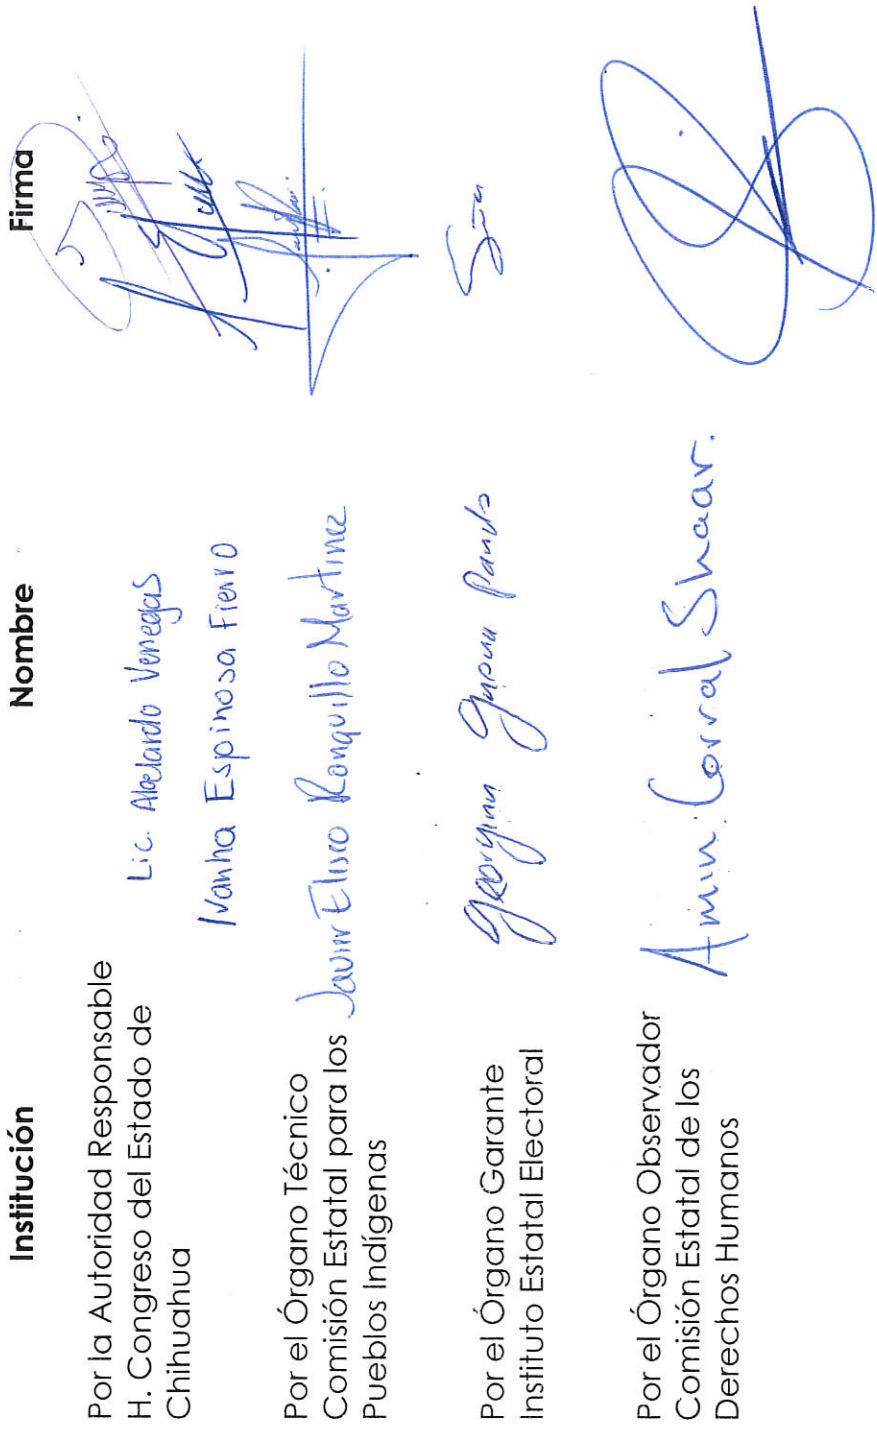 Institución Nombre Firma
Por la Autoridad Responsable
H. Congreso del Estado de
Chihuahua
Lic. Abelardo Venegas
Ivanha Espinosa Fierro
Por el Órgano Técnico
Comisión Estatal para los
Pueblos Indígenas
Javier Eliseo Ronquillo Martinez
Por el Órgano Garante
Instituto Estatal Electoral
Georgina
Por el Órgano Observador
Comisión Estatal de los
Derechos Humanos
Amin Corral Shaar.